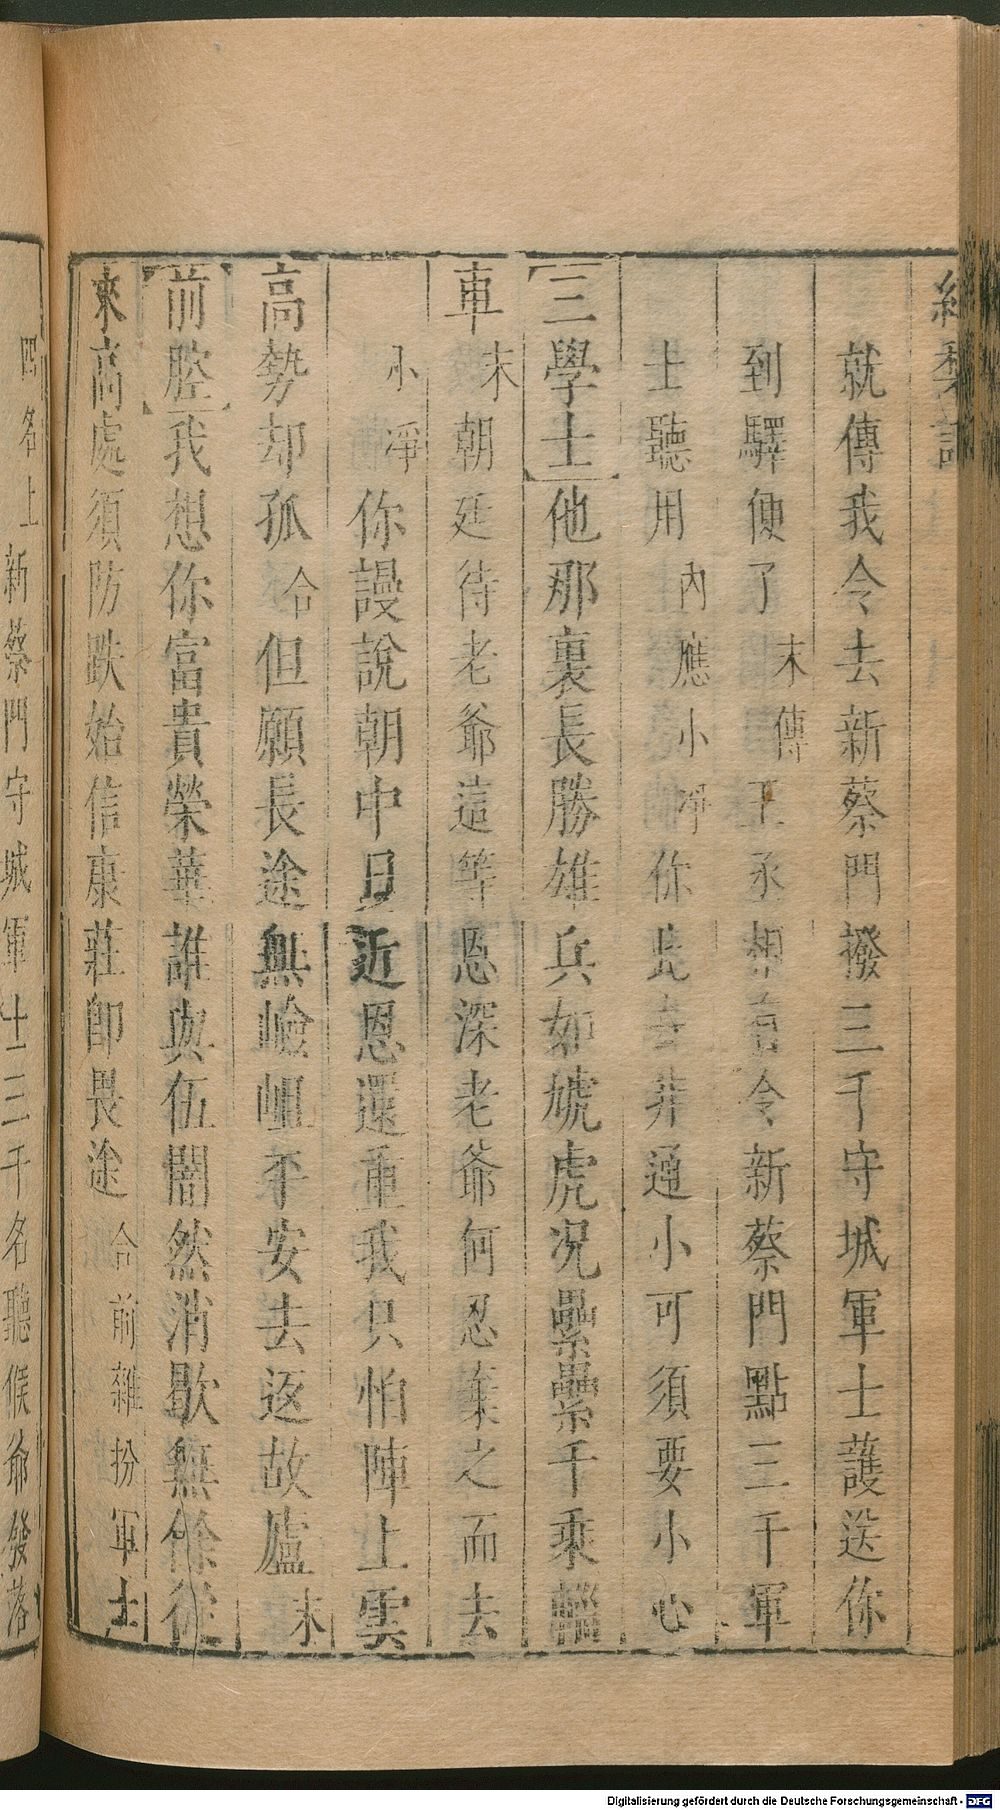 就傳我令去新蔡門撥三千守城軍士護送你
到驛便了末傳王丞相有令新蔡門點三千軍
士聽用內應小淨你此去非通小可須要小心
三學士他那裏長勝雄兵如虓虎況纍纍千乘輜
車末朝延待老爺這等恩深老爺何忍棄之而去
小淨你謾說朝中日近恩還重我只怕陣上雲
高勢却孤合但願長途無嶮岨平安去返故廬末
前腔我想你富貴榮華誰與伍闇然消歇無餘從
來高處須防跌始信康莊卽畏途合前雜扮軍士
四名上新蔡門守城軍士三千名聽候爺發落
Digitalisierung gefördert durch die Deutsche Forschungsgemeinschaft - DFG